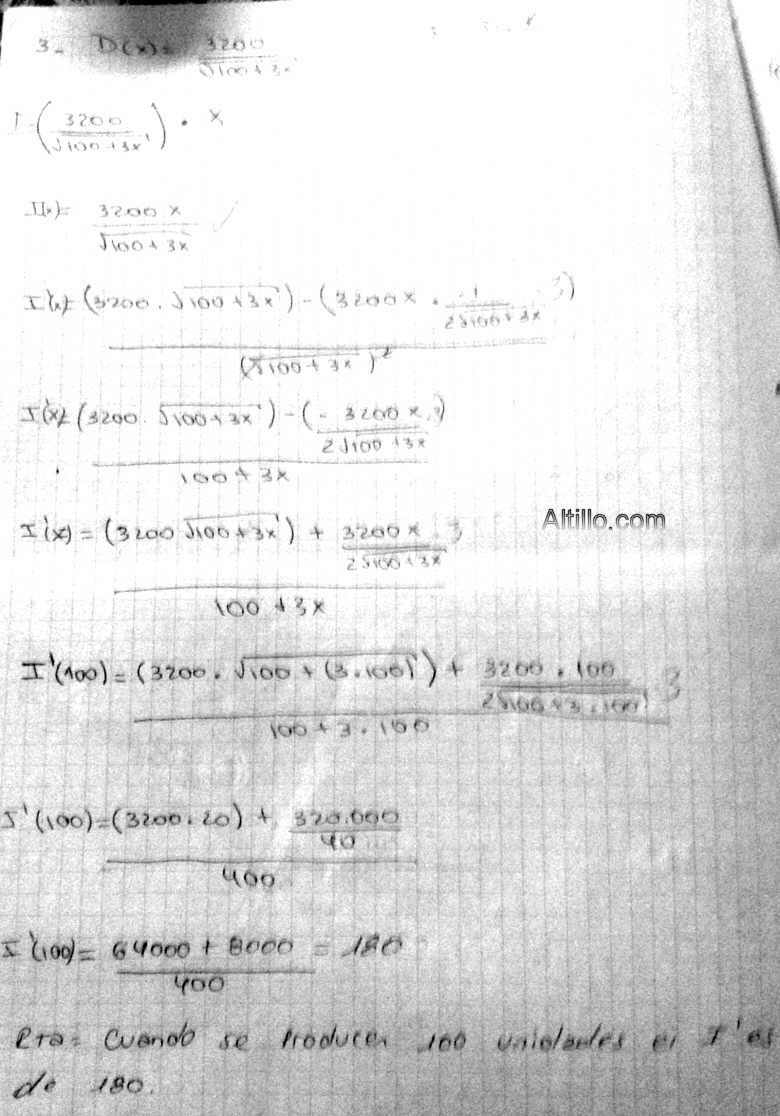 3- D(x)= 3200 / √100+3x
I=(3200 / √100+3x) . x
I(x)= 3200 x / √100+3x
I'(x)= (3200 . √100+3x) - (3200x . 1 / 2√100+3x . 3) / (√100+3x)²
I'(x)= (3200 . √100+3x) - (- 3200x . 3 / 2√100+3x) / 100+3x
I'(x) = (3200 √100+3x) + 3200x / 2√100+3x . 3 / 100+3x
Altillo.com
I'(100)=(3200 . √100+(3.100)) + 3200 . 100 / 2√100+3.100 3 / 100+3.100
I'(100)=(3200.20) + 320.000 / 40 / 400
I'(100)= 64000 + 8000 / 400 = 180
Rta= Cuando se producen 100 unidades el I' es
de 180.